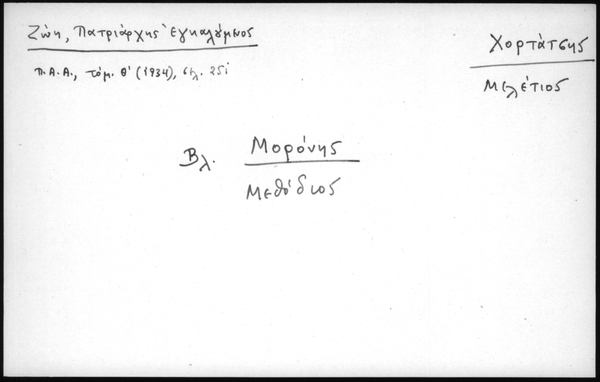 Ζώη, Πατριάρχης Ἐγκαλούμενος
Π.Α.Α., τόμ. Θ' (1934), σελ. 251
Χορτάτσης
Μελέτιος
Βλ. Μορόνης
Μεθόδιος